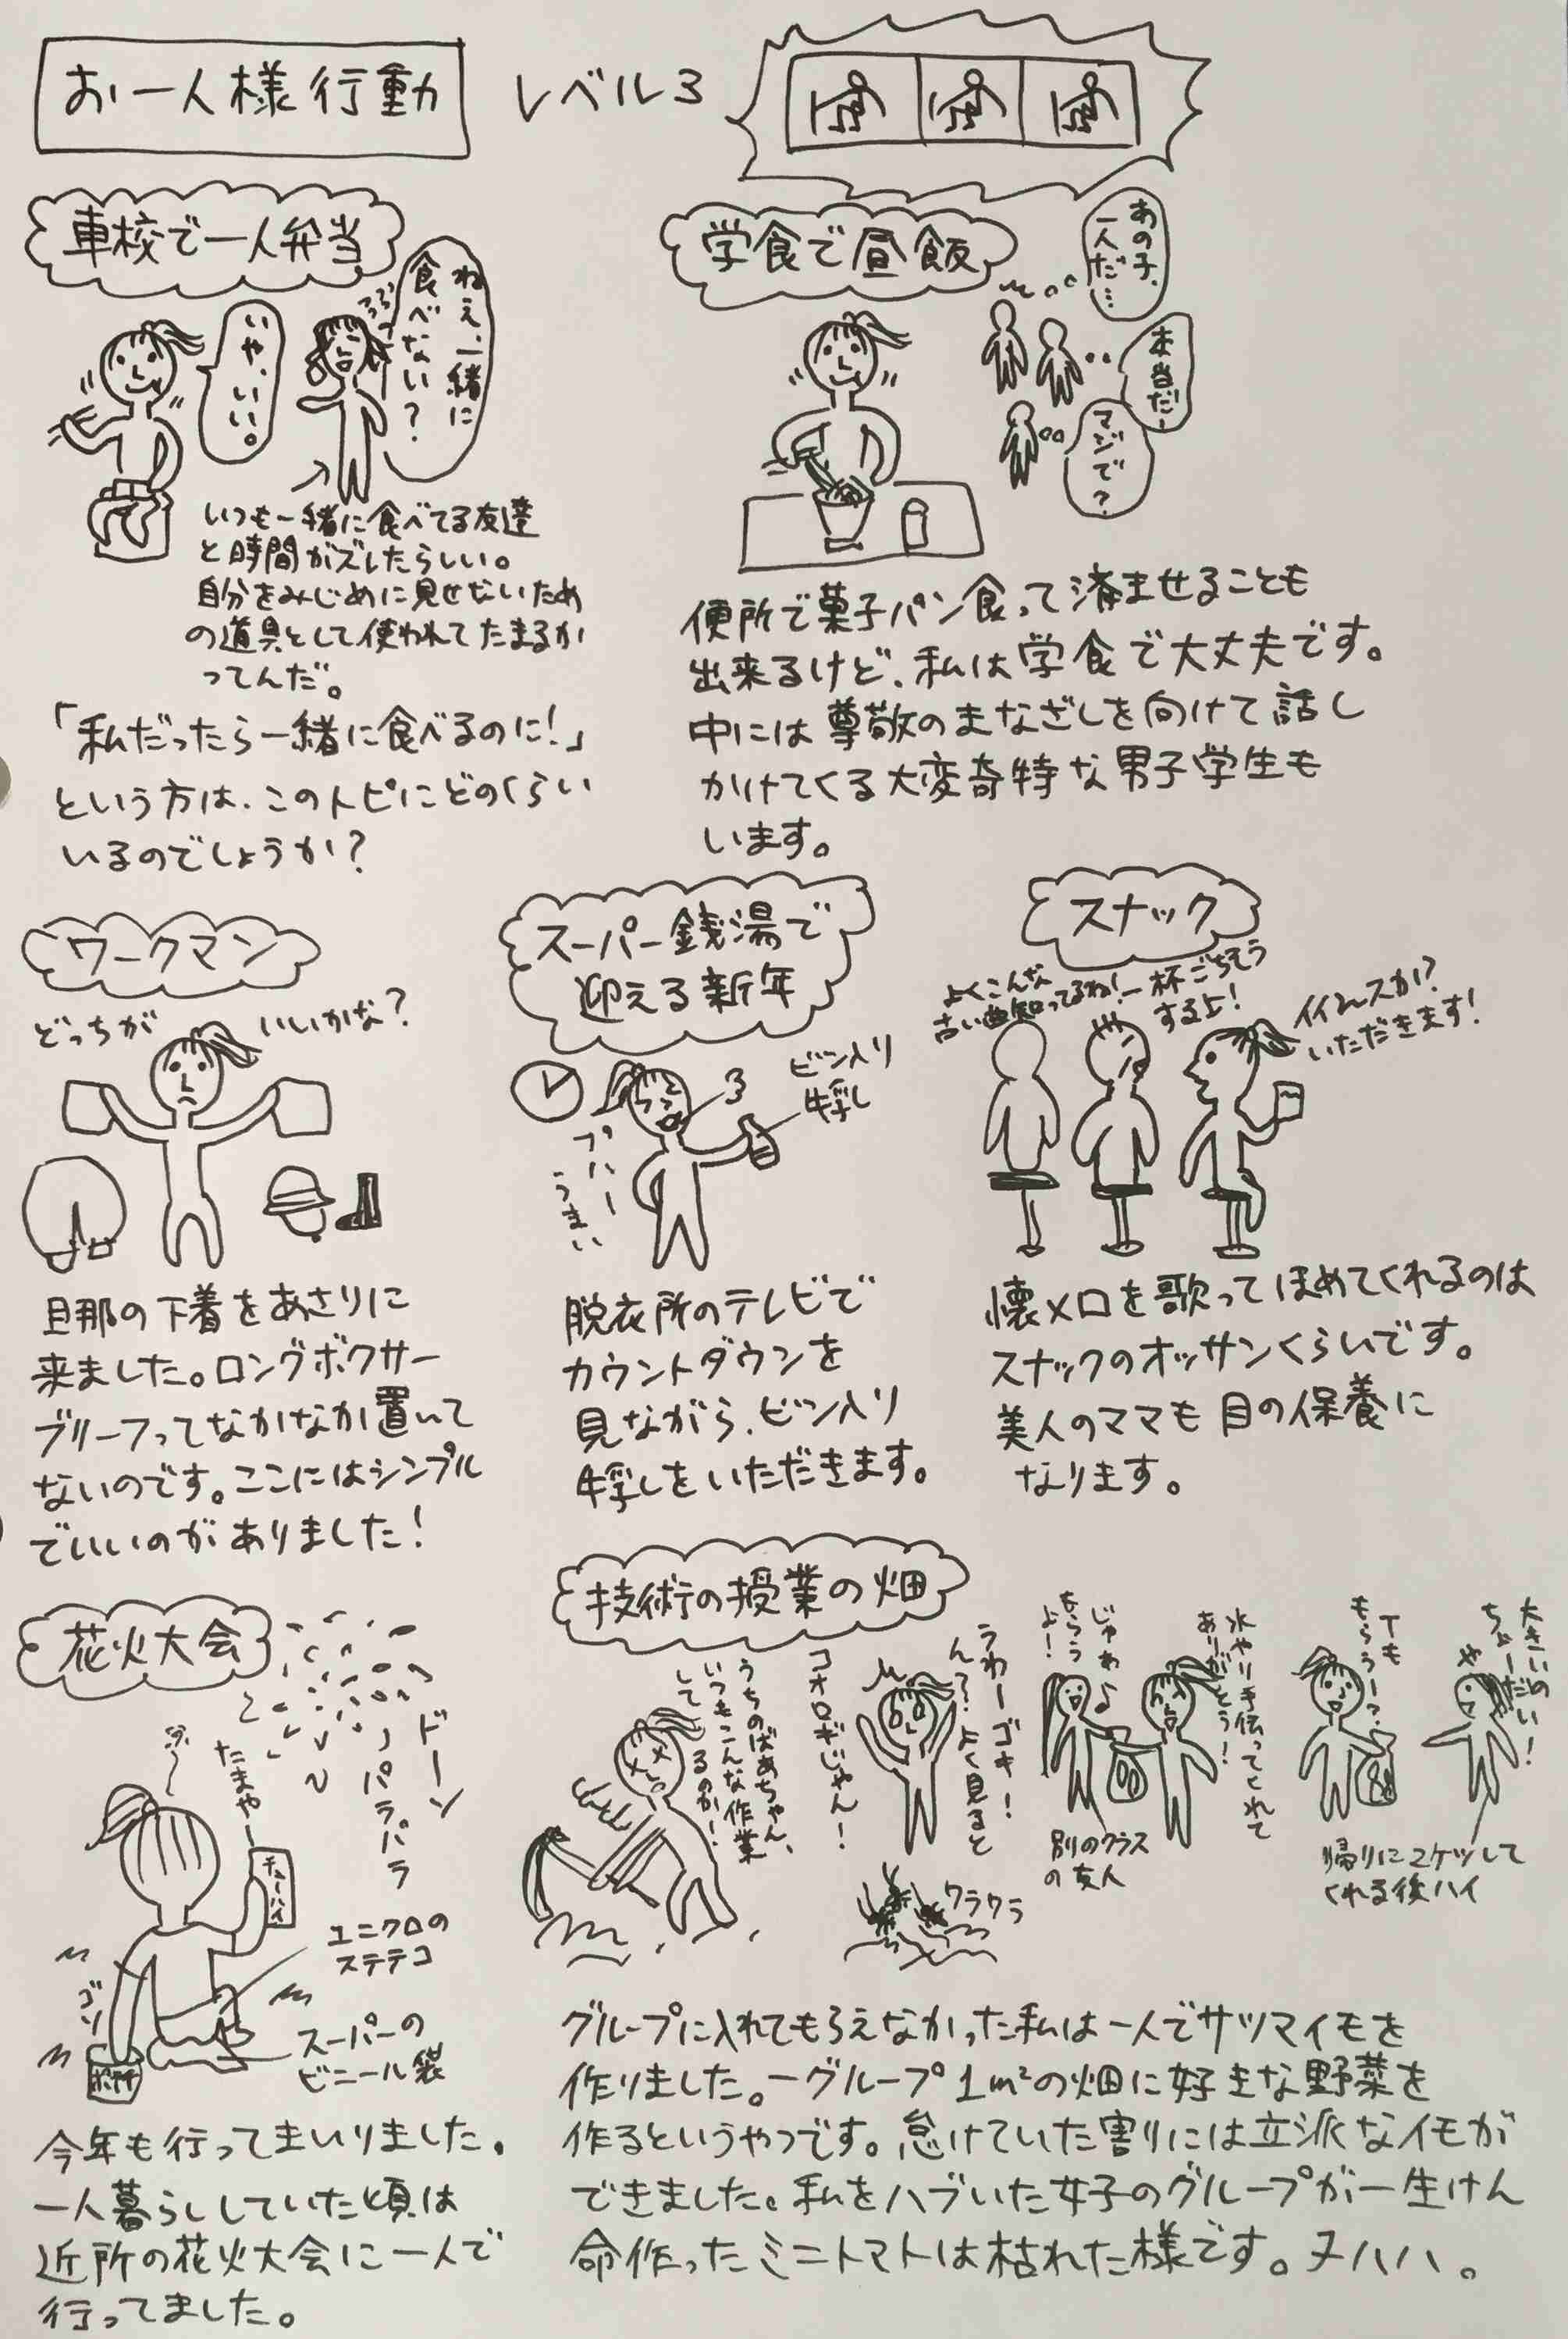 お一人様行動
レベル3
車校で一人弁当
ねえ、一緒に
食べない?
いや、いい。
いつも一緒に食べてる友達
と時間がズレたらしい。
自分をみじめに見せないため
の道具として使われてたまるか
ってんだ。
「私だったら一緒に食べるのに!」
という方は、このトピにどのくらい
いるのでしょうか?
学食で昼飯
あの子、
一人だ…
本当だ…
マジで?
便所で菓子パン食って済ませることも
出来るけど、私は学食で大丈夫です。
中には尊敬のまなざしを向けて話し
かけてくる大変奇特な男子学生も
います。
ワークマン
どっちが
いいかな?
旦那の下着をあさりに
来ました。ロングボクサー
ブリーフってなかなか置いて
ないのです。ここにはシンプル
でいいのがありました!
スーパー銭湯で
迎える新年
ビン入り
牛乳
プハー
うまい
脱衣所のテレビで
カウントダウンを
見ながら、ビン入り
牛乳をいただきます。
スナック
よくこんな
古い曲知ってるね!
一杯ごちそう
するよ!
イイんスか?
いただきます!
懐メロを歌ってほめてくれるのは
スナックのオッサンくらいです。
美人のママも目の保養に
なります。
花火大会
ドーン
パラパラ
たまやー
チューハイ
ユニクロの
ステテコ
ゴソ
スーパーの
ビニール袋
今年も行ってまいりました。
一人暮らししていた頃は
近所の花火大会に一人で
行ってました。
技術の授業の畑
うちのばあちゃん、
いつもこんな作業
してるのか!
うわーゴキ!
ん?よく見ると
コオロギじゃん!
ワラワラ
水やり手伝ってくれて
ありがとう!
じゃあ♪
もらうよ!
別のクラス
の友人
大きいの
ちょーだい!
帰りに2ケツして
くれる後ハイ
グループに入れてもらえなかった私は一人でサツマイモを
作りました。一グループ1m²の畑に好きな野菜を
作るというやつです。怠けていた割りには立派なイモが
できました。私をハブいた女子のグループが一生けん
命作ったミニトマトは枯れた様です。ヌハハ。